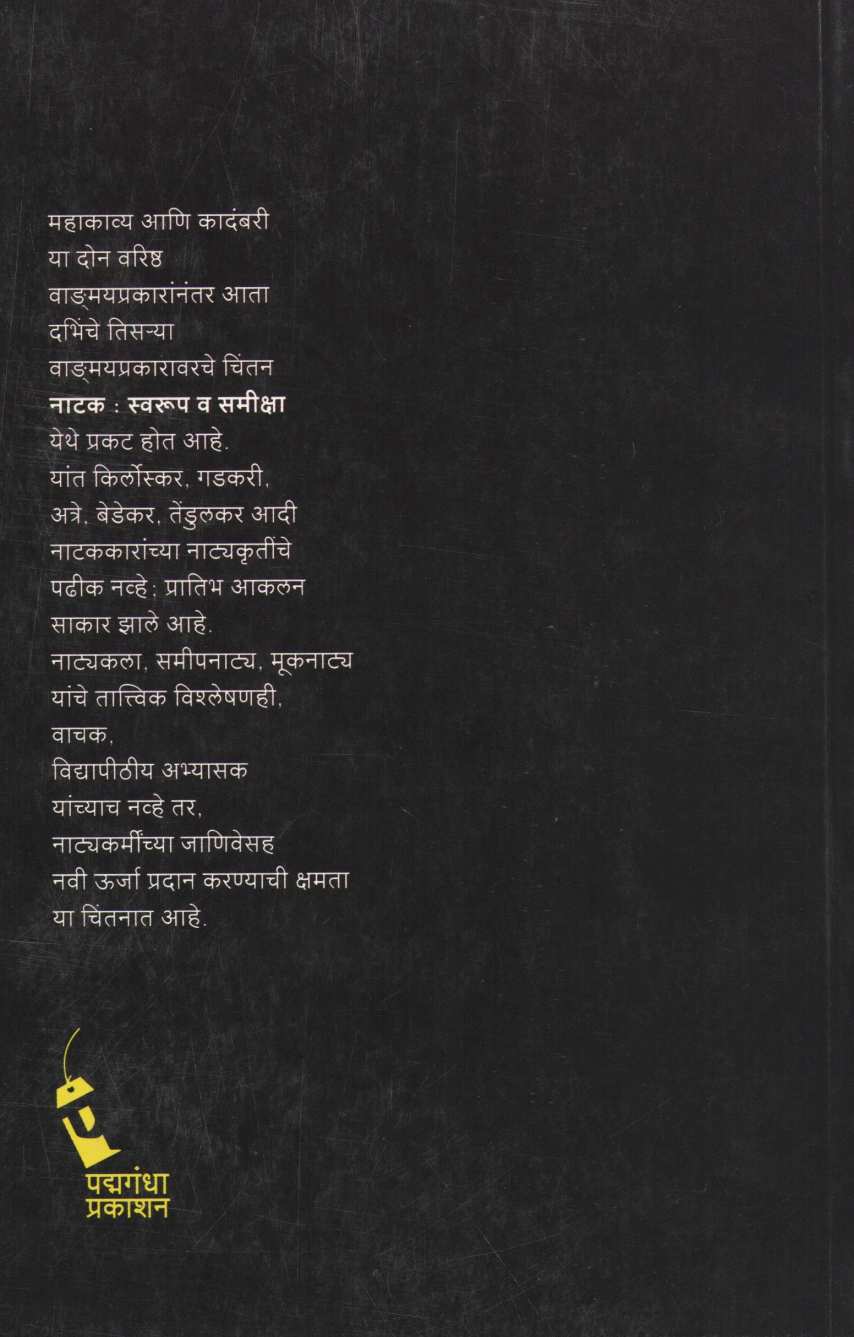 महाकाव्य आणि कादंबरी
या दोन वरिष्ठ
वाङ्मयप्रकारांनंतर आता
दभिंचे तिसऱ्या
वाङ्मयप्रकारावरचे चिंतन
नाटक : स्वरूप व समीक्षा
येथे प्रकट होत आहे.
यांत किर्लोस्कर, गडकरी,
अत्रे, बेडेकर, तेंडुलकर आदी
नाटककारांच्या नाट्यकृतींचे
पढीक नव्हे; प्रातिभ आकलन
साकार झाले आहे.
नाट्यकला, समीपनाट्य, मूकनाट्य
यांचे तात्त्विक विश्लेषणही,
वाचक,
विद्यापीठीय अभ्यासक
यांच्याच नव्हे तर,
नाट्यकर्मींच्या जाणिवेसह
नवी ऊर्जा प्रदान करण्याची क्षमता
या चिंतनात आहे.
पद्मगंधा
प्रकाशन